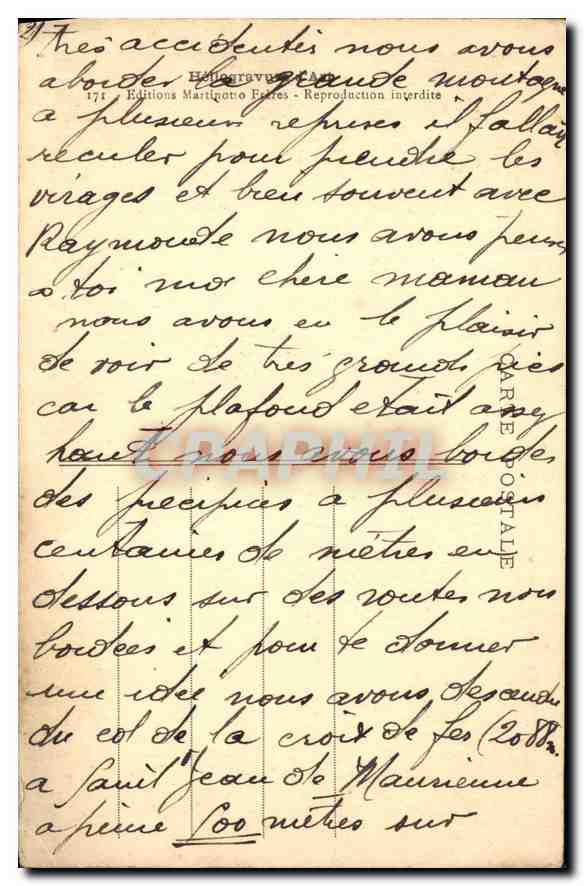 2)
très accidentés nous avons
aborder la grande montagne
Héliogravure d'Art
171 - Editions Martinotto Frères - Reproduction interdite
a plusieurs reprises il fallait
reculer pour prendre les
virages et bien souvent avec
Raymonde nous avons penser
a toi ma chere maman
nous avons eu le plaisir
de voir de très grands pics
car le plafond etait assez
haut nous avons border
des precipices a plusieurs
centaines de mètres en
dessous sur des routes non
bordées et pour te donner
une idée nous avons descendu
du col de la croix de fer (2088m
a Saint Jean de Maurienne
a peine 600 mètres sur
CARTE POSTALE
CPAPHIL